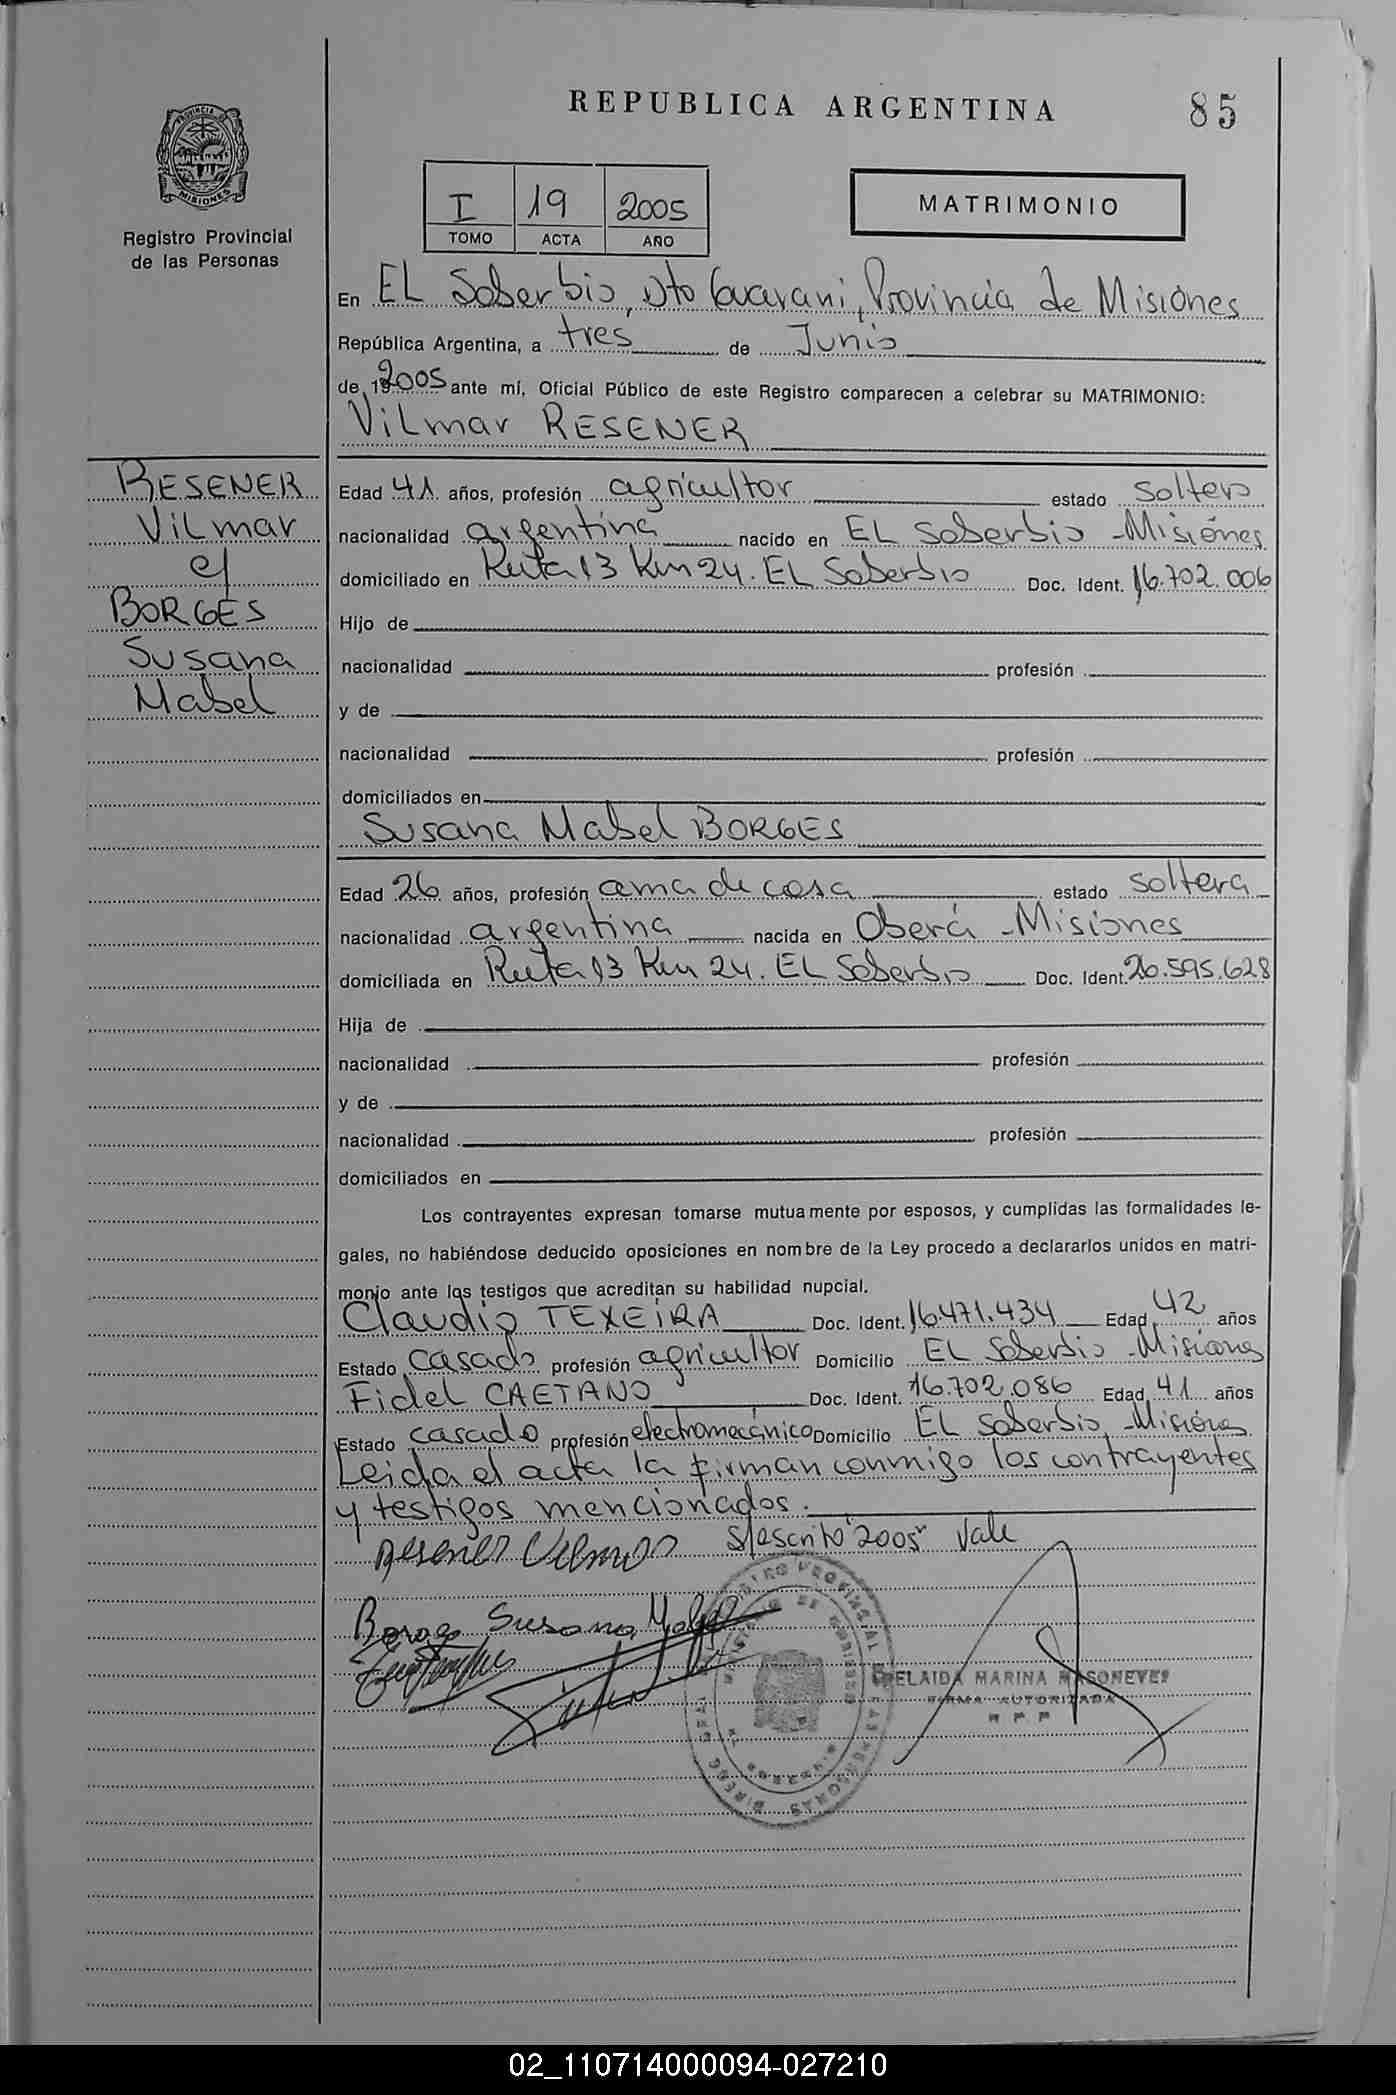 REPUBLICA ARGENTINA
85
PROVINCIA DE
MISIONES
Registro Provincial
de las Personas
I 19 2005
TOMO ACTA AÑO
MATRIMONIO
En EL Soberbio, Dto Guarani, Provincia de Misiones
República Argentina, a tres de Junio
de 192005 ante mí, Oficial Público de este Registro comparecen a celebrar su MATRIMONIO:
Vilmar RESENER
RESENER
Vilmar
c/
BORGES
Susana
Mabel
Edad 41 años, profesión agricultor estado soltero
nacionalidad argentina nacido en EL Soberbio - Misiones
domiciliado en Ruta 13 Km 24. EL Soberbio Doc. Ident. 16.702.006
Hijo de
nacionalidad profesión
y de
nacionalidad profesión
domiciliados en
Susana Mabel BORGES
Edad 26 años, profesión ama de casa estado soltera
nacionalidad argentina nacida en Oberá - Misiones
domiciliada en Ruta 13 Km 24. EL Soberbio Doc. Ident. 26.595.628
Hija de
nacionalidad profesión
y de
nacionalidad profesión
domiciliados en
Los contrayentes expresan tomarse mutuamente por esposos, y cumplidas las formalidades le-
gales, no habiéndose deducido oposiciones en nombre de la Ley procedo a declararlos unidos en matri-
monio ante los testigos que acreditan su habilidad nupcial.
Claudio TEXEIRA Doc. Ident. 16.471.434 Edad 42 años
Estado casado profesión agricultor Domicilio EL Soberbio - Misiones
Fidel CAETANO Doc. Ident. 16.702.086 Edad 41 años
Estado casado profesión electromecánico Domicilio EL Soberbio - Misiones
Leida el acta la firman conmigo los contrayentes
y testigos mencionados.
Resener Vilmar S/escrito "2005" Vale
Borges Susana Mabel
MARINA
FIRMA AUTORIZADA
R P P
02_110714000094-027210